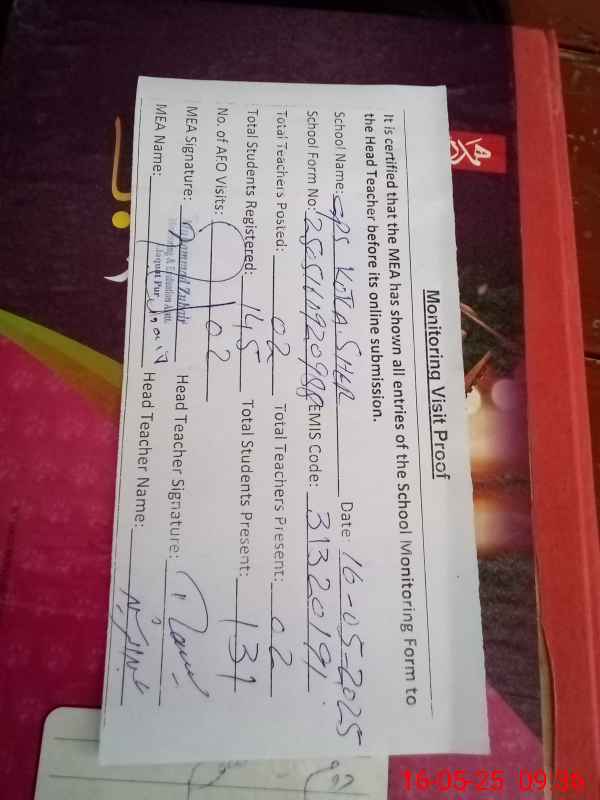 Monitoring Visit Proof
It is certified that the MEA has shown all entries of the School Monitoring Form to
the Head Teacher before its online submission.
School Name: GPS KOTLA SHER Date: 16-05-2025
School Form No: EMIS Code: 31320191
Total Teachers Posted: 02 Total Teachers Present: 02
Total Students Registered: 145 Total Students Present: 131
No. of AFO Visits: 02
MEA Signature: Head Teacher Signature:
Muhammad Zubair
Monitoring & Evaluation Asstt.
Liaquat Pur
MEA Name: Head Teacher Name:
16-05-25 09:36